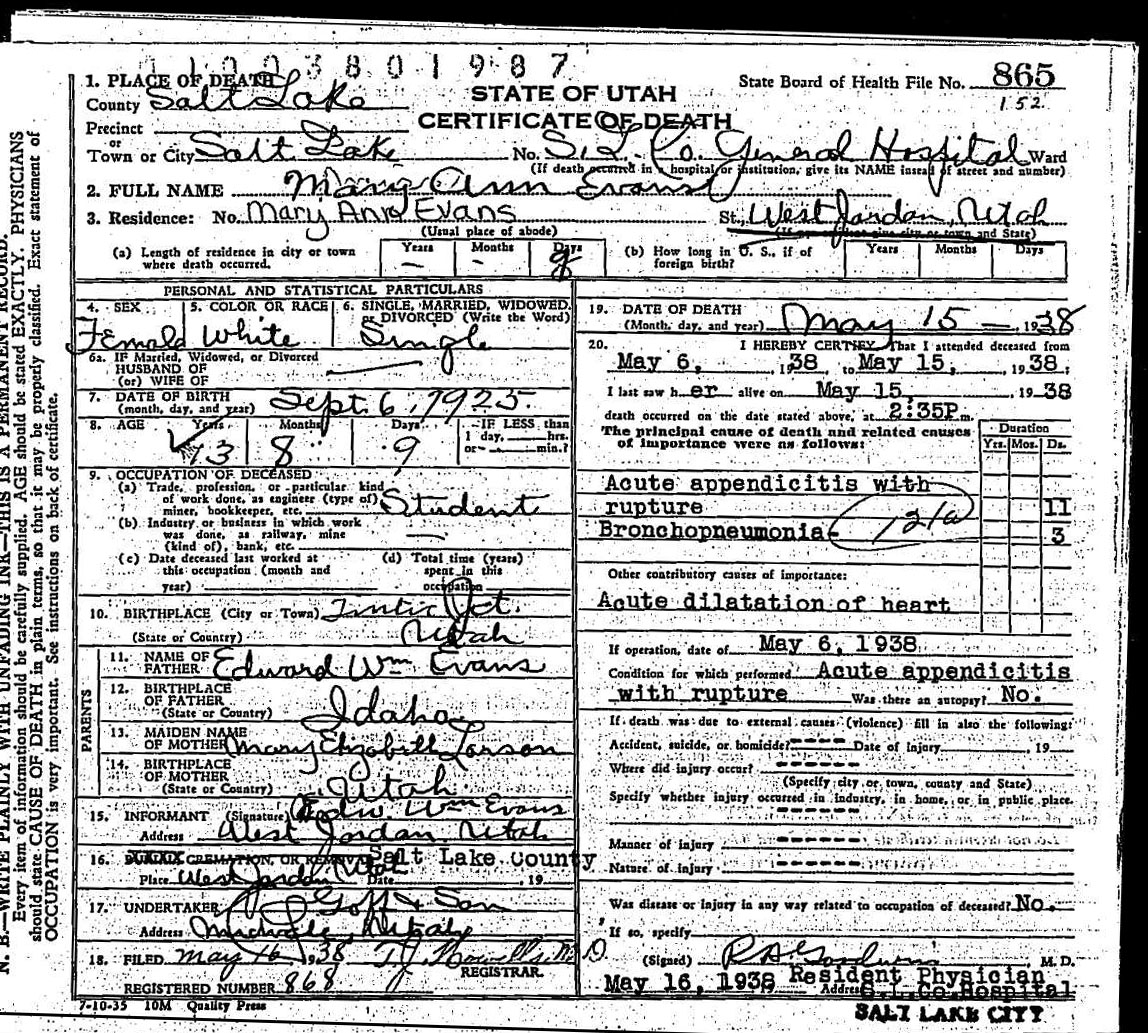 1 1 0 0 3 8 0 1 9 8 7
State Board of Health File No. 865
152
STATE OF UTAH
CERTIFICATE OF DEATH
1. PLACE OF DEATH
County Salt Lake
Precinct
or
Town or City Salt Lake No. S. L. Co. General Hospital Ward
(If death occurred in a hospital or institution, give its NAME instead of street and number)
2. FULL NAME Mary Ann Evans
3. Residence: No. Mary Ann Evans St., West Jordan, Utah
(Usual place of abode)
(a) Length of residence in city or town where death occurred. Years — Months — Days 9
(b) How long in U. S., if of foreign birth? Years Months Days
PERSONAL AND STATISTICAL PARTICULARS
4. SEX 5. COLOR OR RACE 6. SINGLE, MARRIED, WIDOWED, or DIVORCED (Write the Word)
Female White Single
6a. IF Married, Widowed, or Divorced
HUSBAND OF
(or) WIFE OF
7. DATE OF BIRTH
(month, day, and year) Sept. 6, 1925.
8. AGE Years Months Days IF LESS than
1 day, hrs.
or min.?
13 8 9
9. OCCUPATION OF DECEASED
(a) Trade, profession, or particular kind
of work done, as engineer (type of)
miner, bookkeeper, etc. Student
(b) Industry or business in which work
was done, as railway, mine
(kind of), bank, etc. —
(c) Date deceased last worked at
this occupation (month and
year)
(d) Total time (years)
spent in this
occupation
10. BIRTHPLACE (City or Town) Tintic Jct.
(State or Country) Utah
PARENTS
11. NAME OF
FATHER Edward Wm Evans
12. BIRTHPLACE
OF FATHER
(State or Country) Idaho
13. MAIDEN NAME
OF MOTHER Mary Elizabeth Larson
14. BIRTHPLACE
OF MOTHER
(State or Country) Utah
15. INFORMANT (Signature) Edw. Wm Evans
Address West Jordan Utah
16. CREMATION, OR REMOVAL Salt Lake County
Place West Jordan Utah Date , 19
17. UNDERTAKER Goff & Son
Address Midvale, Utah
18. FILED May 16 1938 M D.
REGISTRAR.
REGISTERED NUMBER 868
7-10-35 10M Quality Press
19. DATE OF DEATH
(Month, day, and year) May 15 — , 1938
20. I HEREBY CERTIFY, That I attended deceased from
May 6, 1938, to May 15, 1938,
I last saw her alive on May 15, 1938
death occurred on the date stated above, at 2:35P m.
The principal cause of death and related causes
of importance were as follows:
Duration
Yrs. Mos. Ds.
Acute appendicitis with
rupture 11
Bronchopneumonia 121a 3
Other contributory causes of importance:
Acute dilatation of heart
If operation, date of May 6, 1938
Condition for which performed Acute appendicitis
with rupture Was there an autopsy? No.
If death was due to external causes (violence) fill in also the following:
Accident, suicide, or homicide? ---- Date of injury , 19
Where did injury occur? ------
(Specify city or town, county and State)
Specify whether injury occurred in industry, in home, or in public place.
------
Manner of injury ------
Nature of injury ------
Was disease or injury in any way related to occupation of deceased? No.
If so, specify
(Signed) R A Goodwin M. D.
May 16, 1938 Resident Physician
Address S.L.Co.Hospital
SALT LAKE CITY
N. B.—WRITE PLAINLY WITH UNFADING INK—THIS IS A PERMANENT RECORD.
Every item of information should be carefully supplied. AGE should be stated EXACTLY. PHYSICIANS
should state CAUSE OF DEATH in plain terms, so that it may be properly classified. Exact statement of
OCCUPATION is very important. See instructions on back of certificate.